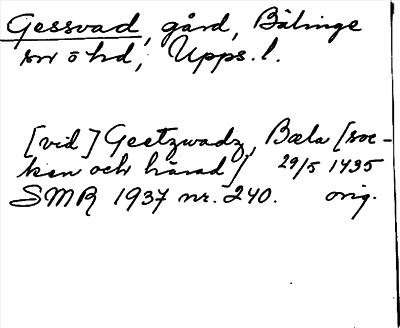 Gessvad, gård, Bälinge
sn o hd, Upps. l.
[vid] Geetzwadz, Bæla [soc-
ken och härad] 29/5 1435
SMR 1937 nr. 240. orig.